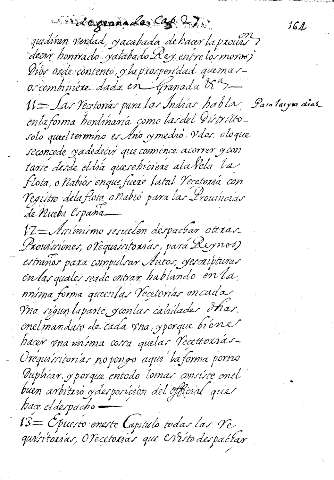 de granada. Cap. 27. 164
quedaren verdad, y acabada de hacer la provision
decir honrado, y alabado Rey entre los moros,
Dios os de contento, y la prosperidad que mas
os combiniere. dada en Granada
11= Las Rezetorias para las Indias habla, Para las yndias
en la forma hordinaria como las del Districto
solo que el termino es Año y medio, v dos, o lo que
se concede, y a de decir que comience a correr y con
tarse desde el dia que se hiciere a la vela la
flota, o Nabios en que fuere la tal Rezetoria con
registro de la flota, o Nabio para las Provincias
de Nueba España
12= Assimismo se suelen despachar otras
Provisiones, o Requisitorias, para Reynos
estraños para compulsar Autos, y escripturas
en las quales se a de entrar hablando en la
misma forma que en las Rezetorias en cada
vna, segun la parte, y con las calidades dhas,
en el mandato de cada vna, y porque bienen a
hacer vna misma cossa que las Rezetorias
o requisitorias no pongo aqui la forma por no
duplicar, y porque en todo lo mas consiste en el
buen arbitrio y desposicion del official que
hace el despacho
13= E puesto en este Capitulo todas las Re
quisitorias, o Rezetorias que e visto despachar